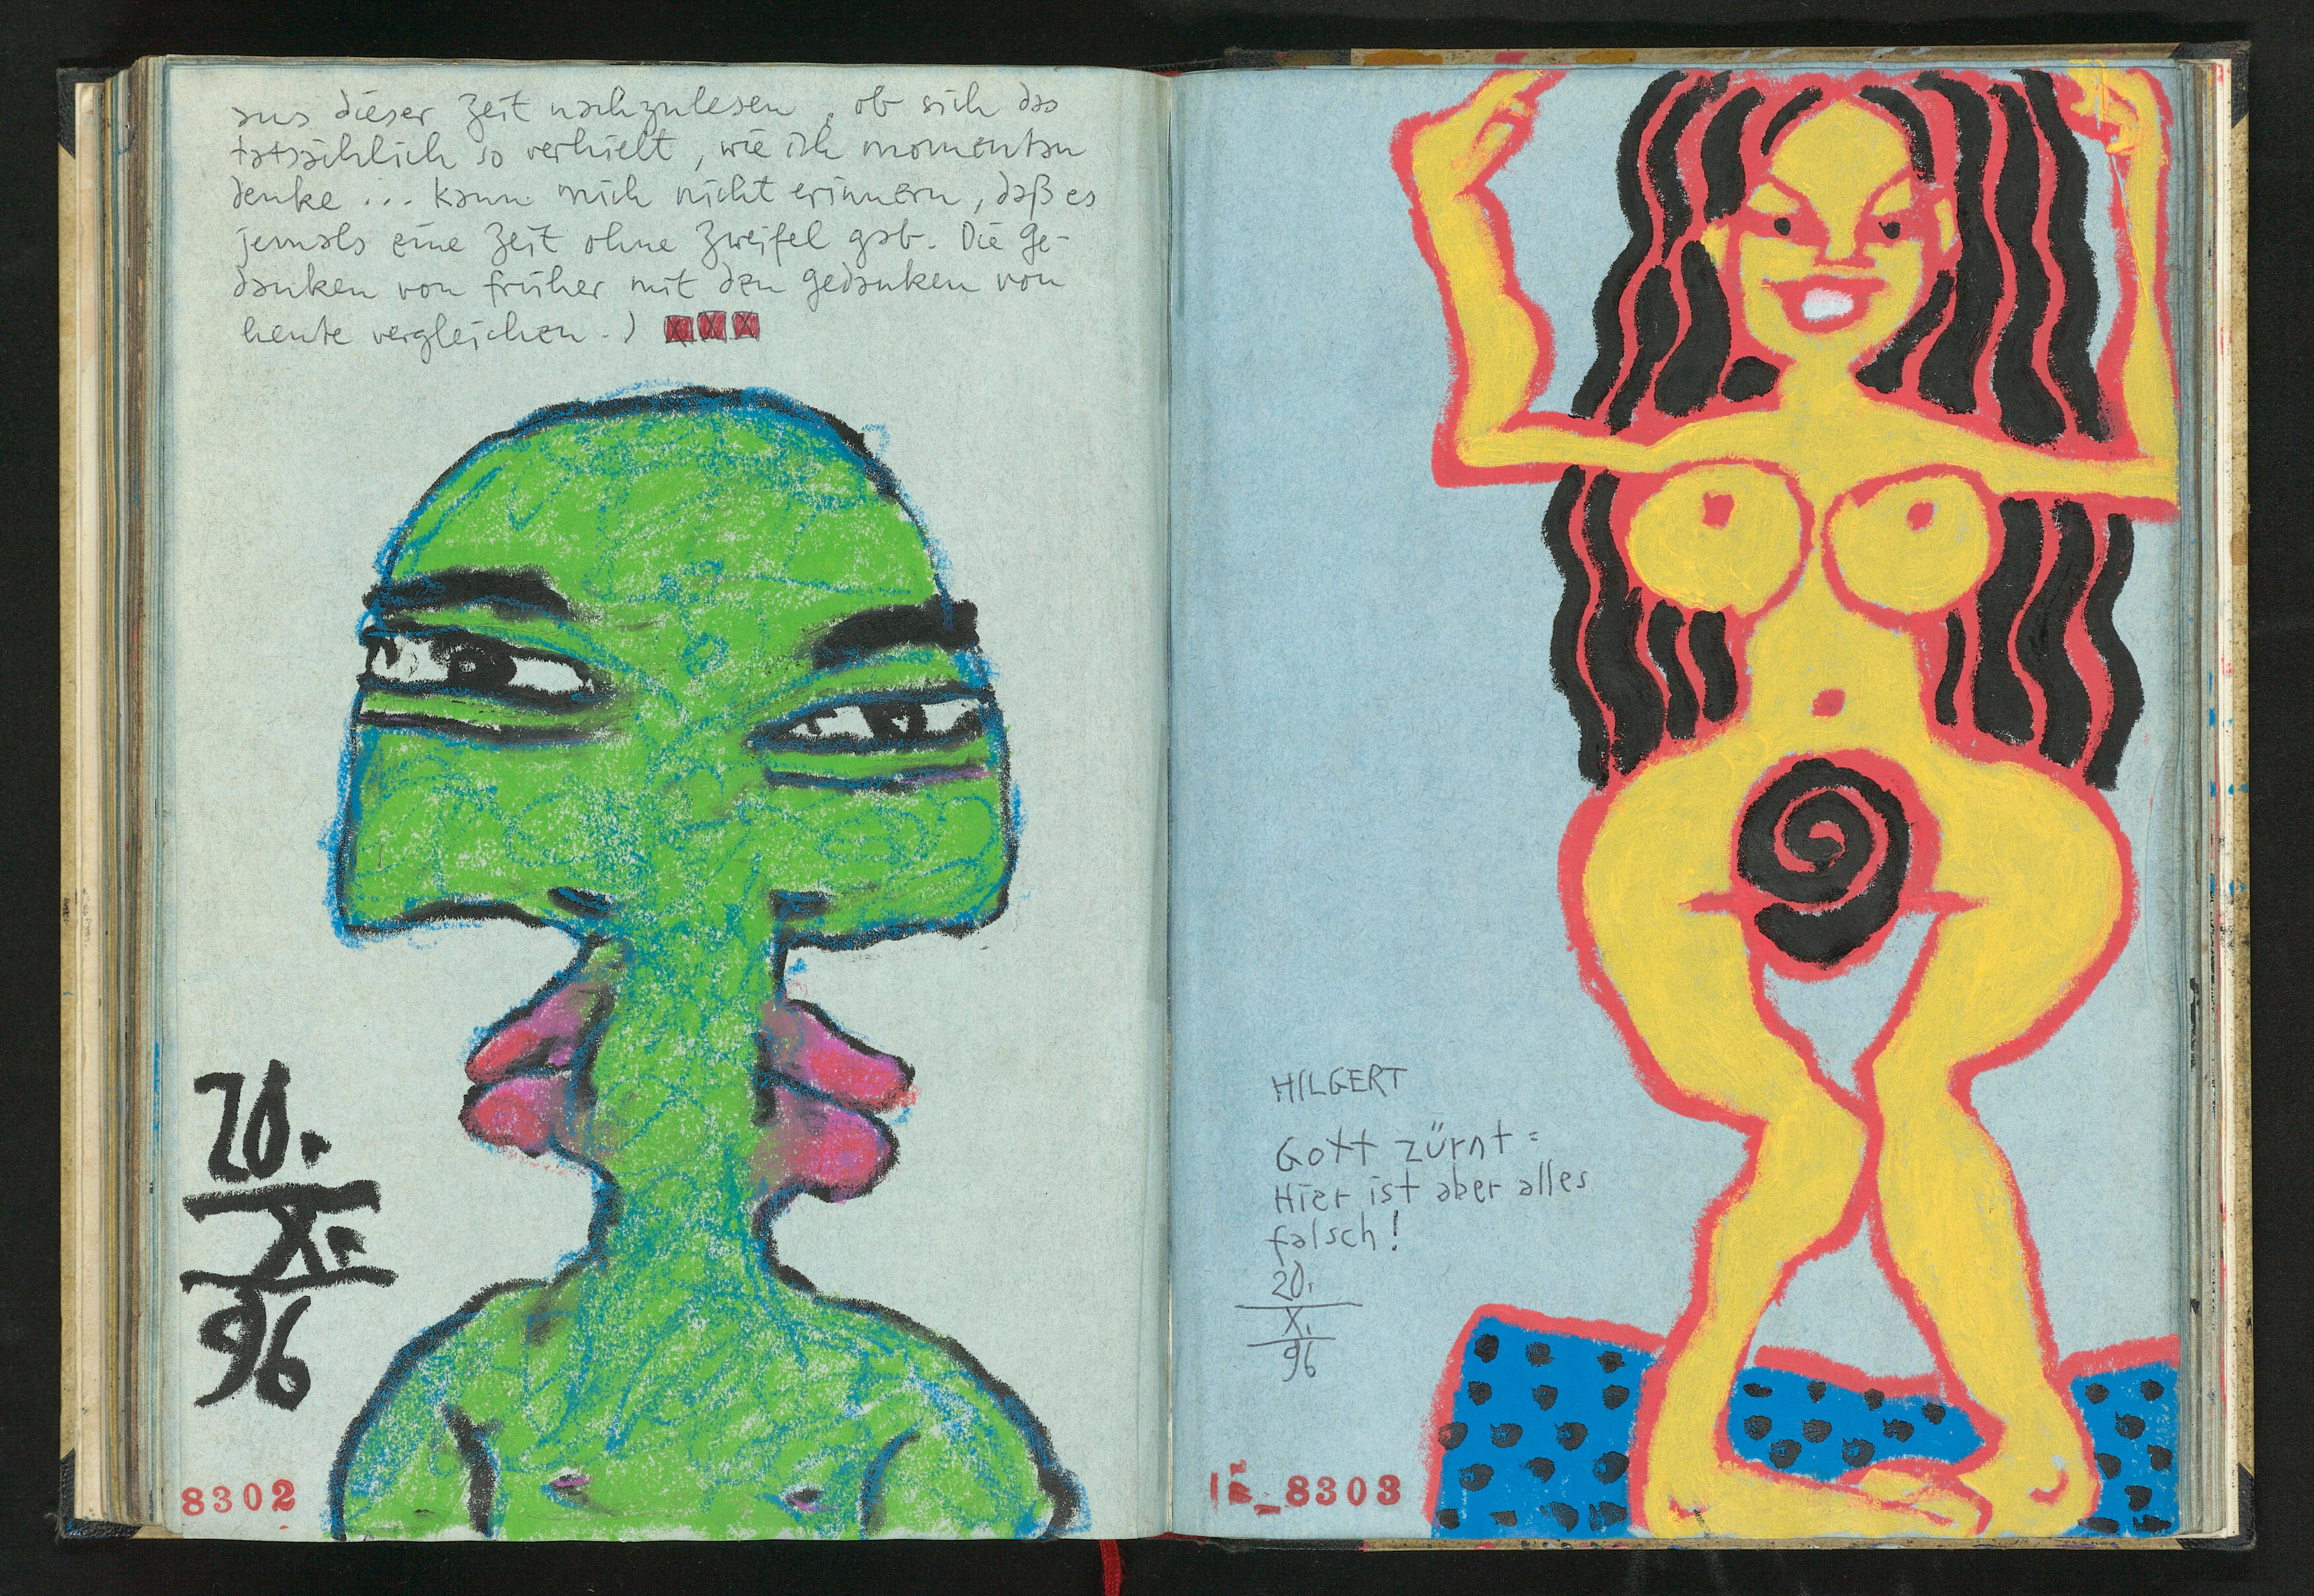 aus dieser Zeit nachzulesen, ob sich das
tatsächlich so verhielt, wie ich momentan
denke ... kann mich nicht erinnern, daß es
jemals eine Zeit ohne Zweifel gab. Die Ge-
danken von früher mit den Gedanken von
heute vergleichen.)
20.
X.
96
8302
HILGERT
Gott zürnt:
Hier ist aber alles
falsch!
20.
X.
96
8303